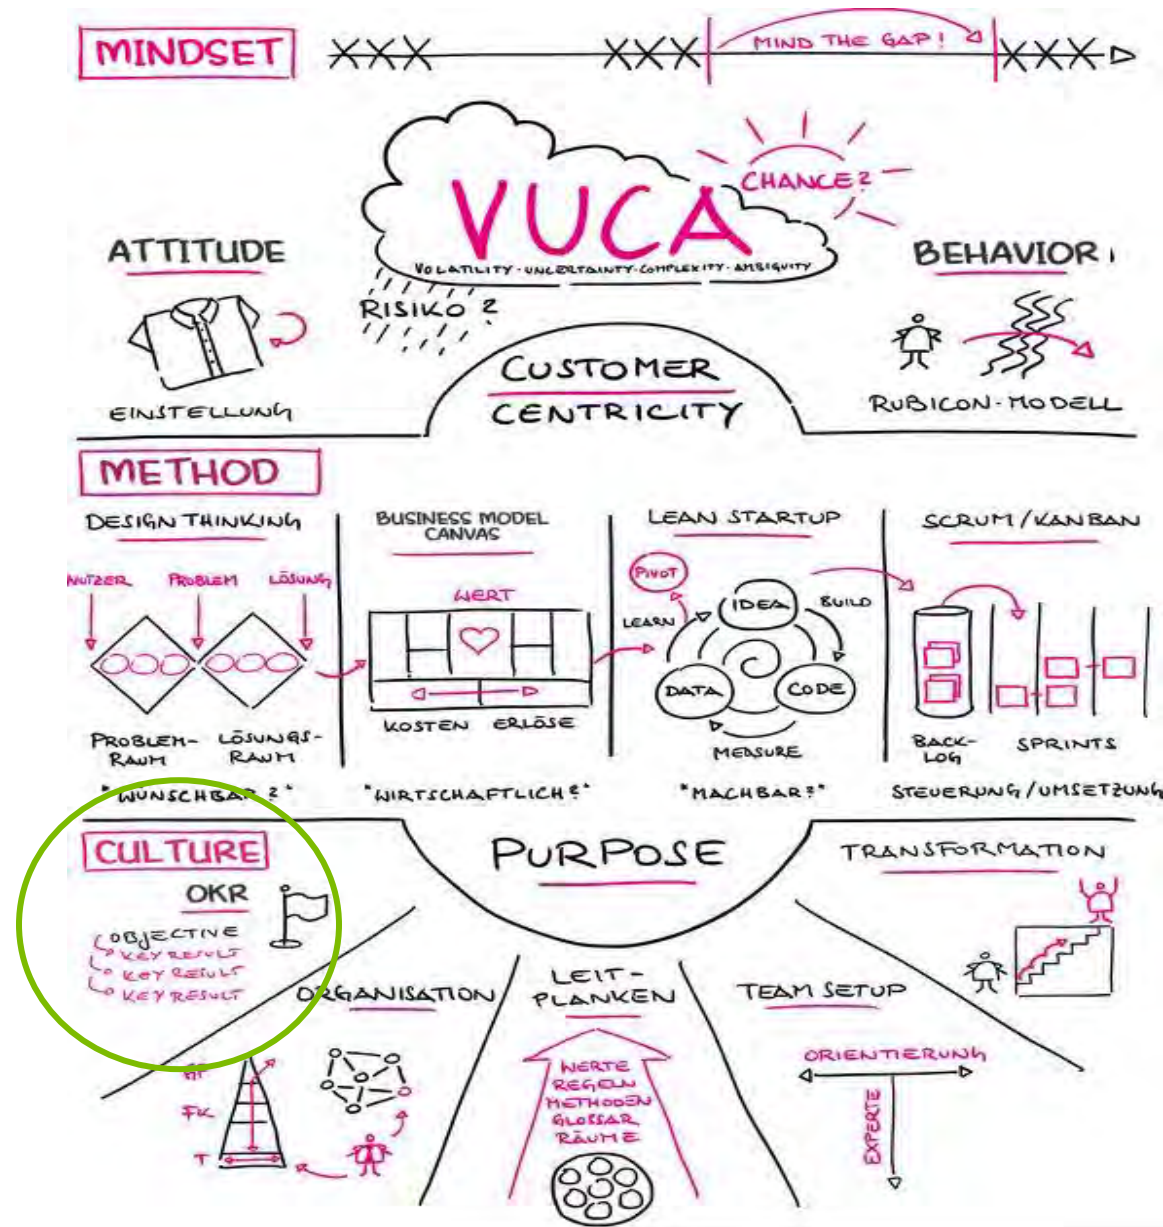 MINDSET
MIND THE GAP!
VUCA
CHANCE?
VOLATILITY · UNCERTAINTY · COMPLEXITY · AMBIGUITY
RISIKO?
ATTITUDE
EINSTELLUNG
BEHAVIOR
RUBICON-MODELL
CUSTOMER
CENTRICITY
METHOD
DESIGN THINKING
NUTZER PROBLEM LÖSUNG
PROBLEM-
RAUM
LÖSUNGS-
RAUM
"WÜNSCHBAR?"
BUSINESS MODEL
CANVAS
WERT
KOSTEN ERLÖSE
"WIRTSCHAFTLICH?"
LEAN STARTUP
PIVOT
LEARN
IDEA
BUILD
DATA
CODE
MEASURE
"MACHBAR?"
SCRUM/KANBAN
BACK-
LOG
SPRINTS
STEUERUNG/UMSETZUNG
CULTURE
PURPOSE
OKR
OBJECTIVE
KEY RESULT
KEY RESULT
KEY RESULT
ORGANISATION
FK
T
LEIT-
PLANKEN
WERTE
REGELN
METHODEN
GLOSSAR
RÄUME
TEAM SETUP
ORIENTIERUNG
EXPERTE
TRANSFORMATION